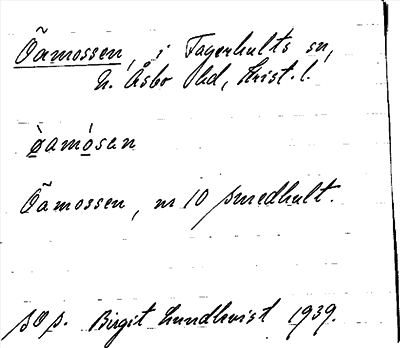 Öamossen, i Fagerhults sn,
N. Åsbo hd, Krist. l.
ø̀amósan
Öamossen, nr 10 Smedhult.
sOs. Birgit Lundkvist 1939.